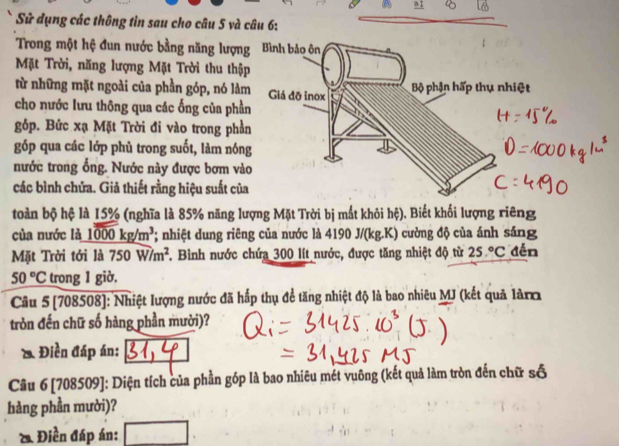 Sử dụng các thông tin sau cho câu 5 và câu 6:
Trong một hệ đun nước bằng năng lượng
Mặt Trời, năng lượng Mặt Trời thu thập
từ những mặt ngoài của phần góp, nó làm
cho nước lưu thông qua các ống của phần
góp. Bức xạ Mặt Trời đi vào trong phần
góp qua các lớp phủ trong suốt, làm nóng
nước trong ống. Nước này được bơm vào
các bình chứa. Giả thiết rằng hiệu suất của
Bình bảo ôn
Giá đỡ inox
Bộ phận hấp thụ nhiệt
H = 15%
D = 1000 kg/m³
C = 4190
toàn bộ hệ là 15% (nghĩa là 85% năng lượng Mặt Trời bị mất khỏi hệ). Biết khối lượng riêng
của nước là 1000 kg/m³; nhiệt dung riêng của nước là 4190 J/(kg.K) cường độ của ánh sáng
Mặt Trời tới là 750 W/m². Bình nước chứa 300 lít nước, được tăng nhiệt độ từ 25 °C đến
50 °C trong 1 giờ.
Câu 5 [708508]: Nhiệt lượng nước đã hấp thụ để tăng nhiệt độ là bao nhiêu MJ (kết quả làm
tròn đến chữ số hàng phần mười)?
Qi = 31425.10³ (J)
Điền đáp án: 31,4
= 31,425 MJ
Câu 6 [708509]: Diện tích của phần góp là bao nhiêu mét vuông (kết quả làm tròn đến chữ số
hàng phần mười)?
Điền đáp án: